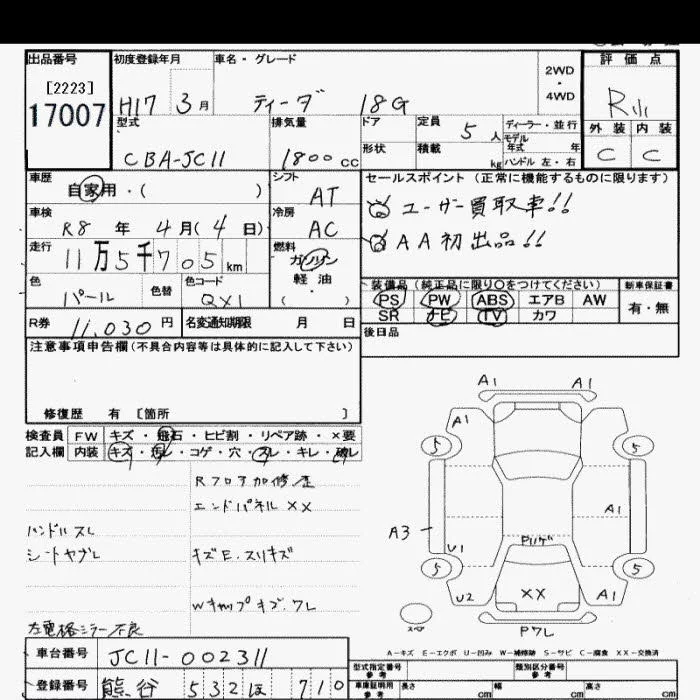 出品番号
[2223]
17007
初度登録年月
H17 3月
車名・グレード
ティーダ 18G
2WD
・
4WD
評価点
R
外装 内装
C C
型式
CBA-JC11
排気量
1800cc
ドア
形状
定員
5人
積載
kg
ディーラー・並行
モデル
年式 年
ハンドル 左・右
車歴
自家用・( )
シフト
AT
車検
R8年4月(4日)
冷房
AC
走行
11万5千705km
燃料
ガソリン
・
軽油
( )
色
パール
色替
色コード
QX1
R券 11,030円
名変通知期限 月 日
セールスポイント(正常に機能するものに限ります)
ユーザー買取車!!
AA初出品!!
装備品(純正品に限り○をつけてください)
新車保証書
PS PW ABS エアB AW
SR ナビ TV カワ
有・無
後日品
注意事項申告欄(不具合内容等は具体的に記入して下さい)
修復歴 有 [箇所 ]
検査員
記入欄
FW キズ・飛石・ヒビ割・リペア跡・×要
内装 キズ・汚レ・コゲ・穴・スレ・キレ・破レ
Rフロア加修歴
エンドパネルXX
ハンドルスレ
シートヤブレ
キズE.スリキズ
Wキャップキズ.ワレ
左電格ミラー不良
A1 A1
A1
5 5
A3 A1
U1
Pリケ
5 5
XX
U2 A1
スペア
Pワレ
A-キズ E-エクボ U-凹み W-補修跡 S-サビ C-腐食 XX-交換済
車台番号 JC11-002311
登録番号 熊谷 532 ほ 710
型式指定番号
参考
類別区分番号
参考
車庫証明用
参考
長さ cm 幅 cm 高さ cm